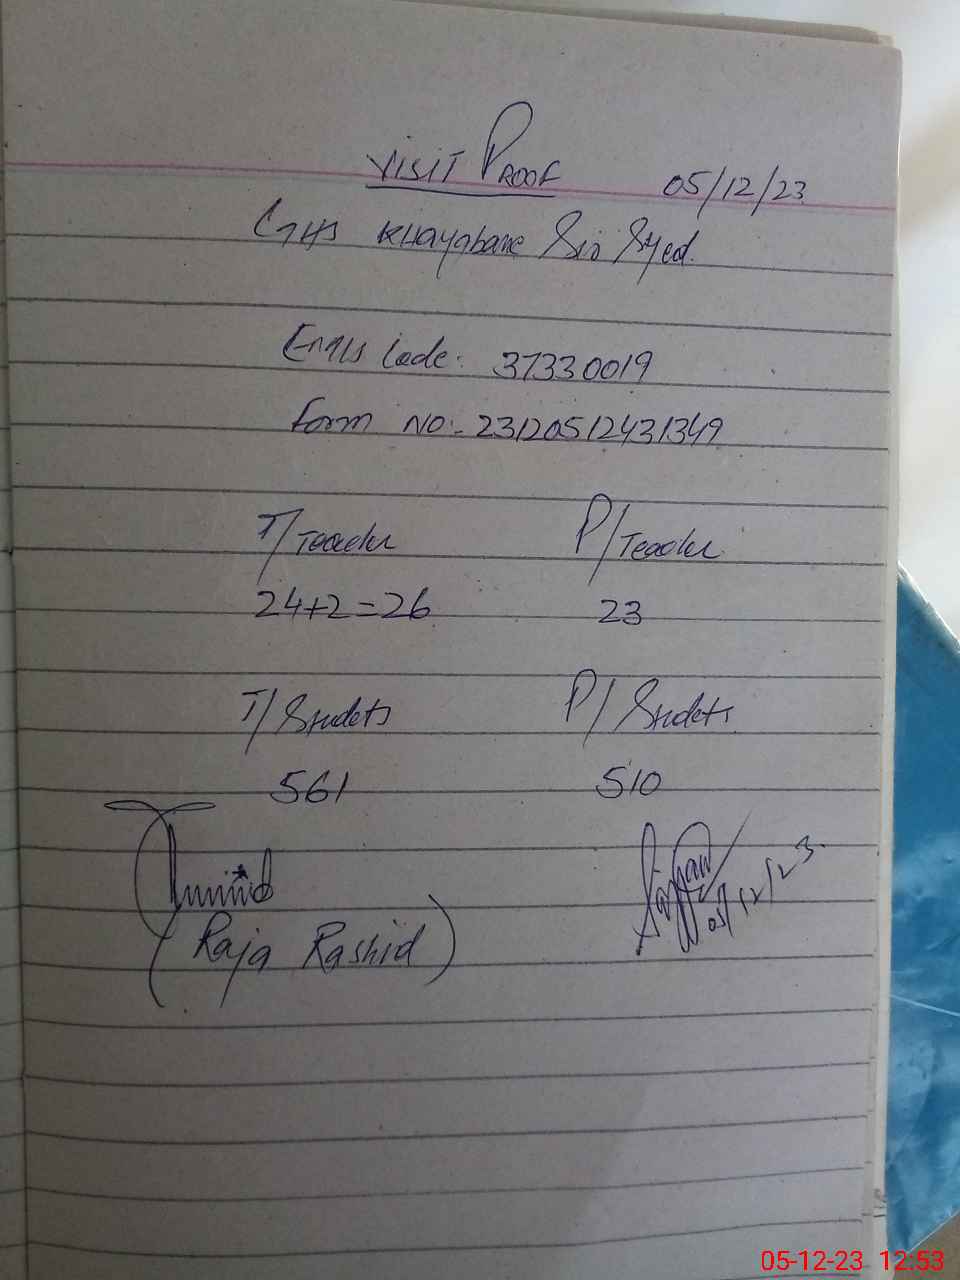 VISIT PROOF 05/12/23
GHS KHAyabane Sir Syed.
Emis Code: 37330019
Form NO:- 23120512431349
T/Teacher P/Teacher
24+2=26 23
T/Studets P/Studets
561 510
05/12/23
(Raja Rashid)
05-12-23 12:53